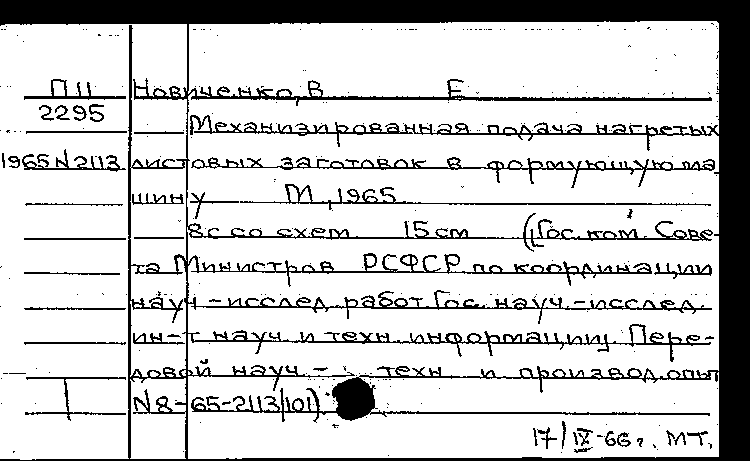 П 11 Новиченко, В Е
2295
Механизированная подача нагретых
1965 N 2113 листовых заготовок в формующую ма
шину М, 1965
8с со схем 15 см (Гос. ком. Сове-
та Министров РСФСР по координации
науч-исслед работ Гос. науч.-исслед.
ин-т науч и техн. информации. Пере-
довой науч.- техн и производ. опыт
N 8-65-2113/101)
17/IX-66 г. МТ.